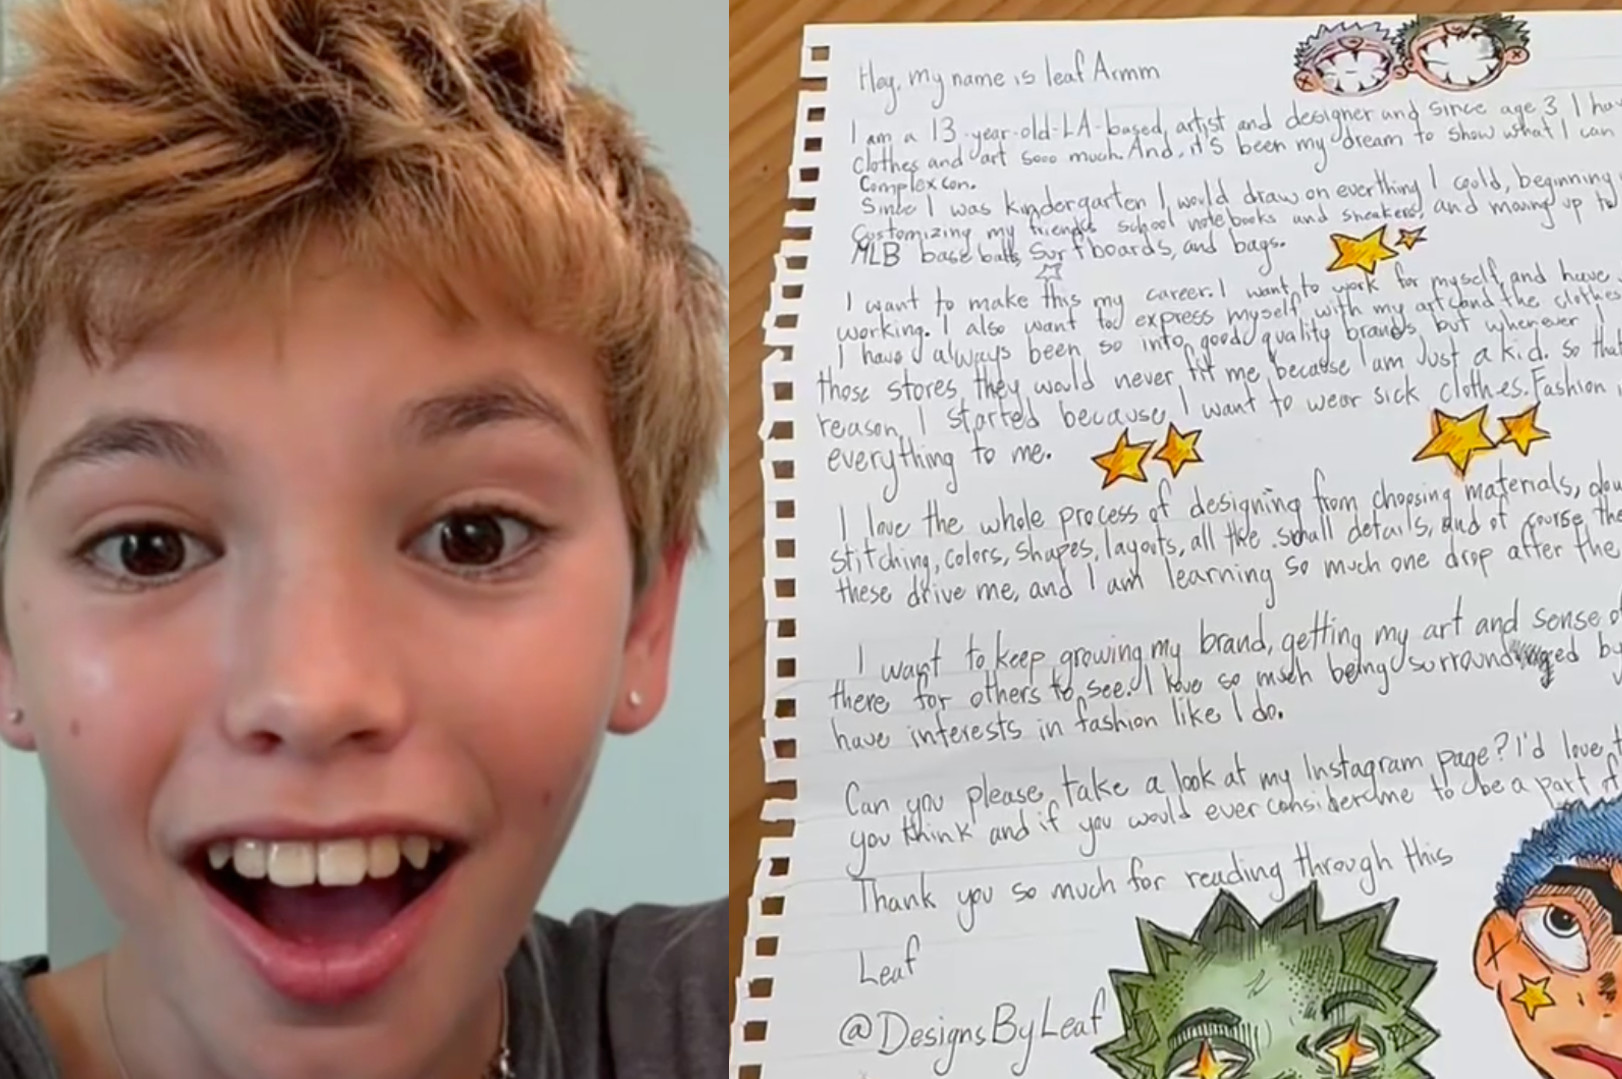 Hey, my name is leaf Armm
I am a 13-year-old-LA-based, artist and designer and since age 3 I hav
clothes and art sooo much. And, it's been my dream to show what I can
Complexcon.
Since I was kindergarten I would draw on everthing I could, beginning
Customizing my friends school notebooks and sneakers, and moving up to
MLB base balls, surfboards, and bags.
I want to make this my career. I want to work for myself, and have
working. I also want to express myself with my art and the clothes
I have always been so into good quality brands, but whenever I
those stores, they would never fit me because I am Just a kid. so that
reason, I started because I want to wear sick clothes. Fashion
everything to me.
I love the whole process of designing from choosing materials,
stitching, colors, shapes, layouts, all the small details, and of course the
these drive me, and I am learning so much one drop after the
I want to keep growing my brand, getting my art and sense o
there for others to see. I love so much being surrounded by
have interests in fashion like I do.
Can you please take a look at my Instagram page? I'd love t
you think and if you would ever consider me to be a part of
Thank you so much for reading through this
Leaf
@DesignsByLeaf